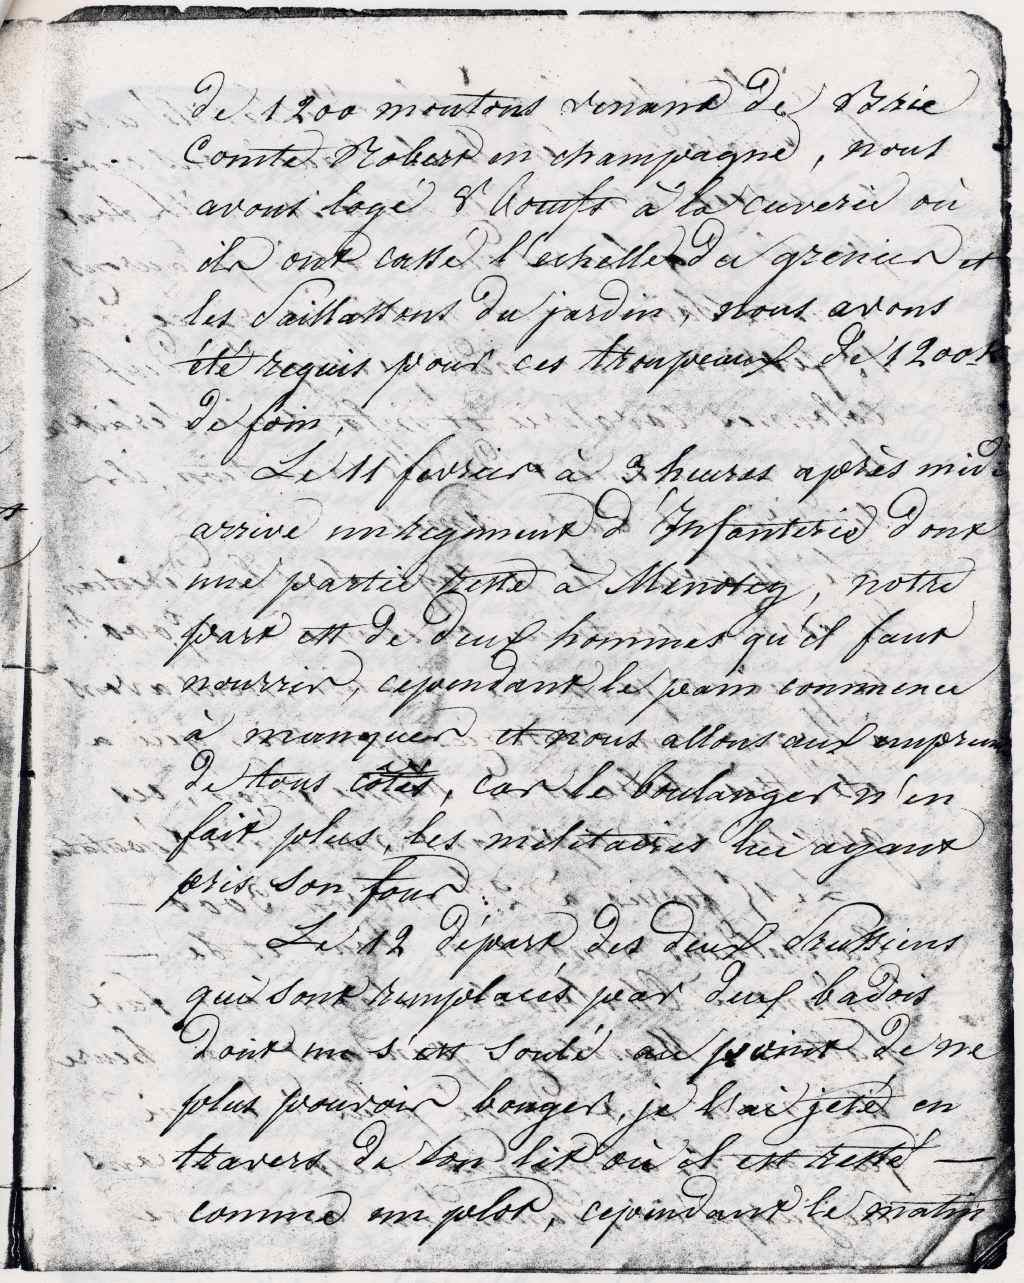 de 1200 moutons venant de Brie
Comte Robert en champagne, nous
avons logé 8 bœufs à la cuverie où
ils ont cassé l'echelle du grenier et
les paillassons du jardin, nous avons
été requis pour ces troupeaux de 1200 k
de foin,
Le 11 fevrier à 3 heures après midi
arrive un regiment d'Infanterie dont
une partie reste à Menotey, notre
part est de deux hommes qu'il faut
nourrir, cependant le pain commence
à manquer et nous allons aux emprun
de tous côtés, car le boulanger n'en
fait plus, les militaires lui ayant
pris son four
Le 12 départ des deux Prussiens
qui sont remplacés par deux badois
dont un s'est soulé au point de ne
plus pouvoir bouger, je l'ai jeté en
travers de son lit où il est resté —
comme un plot, cependant le matin